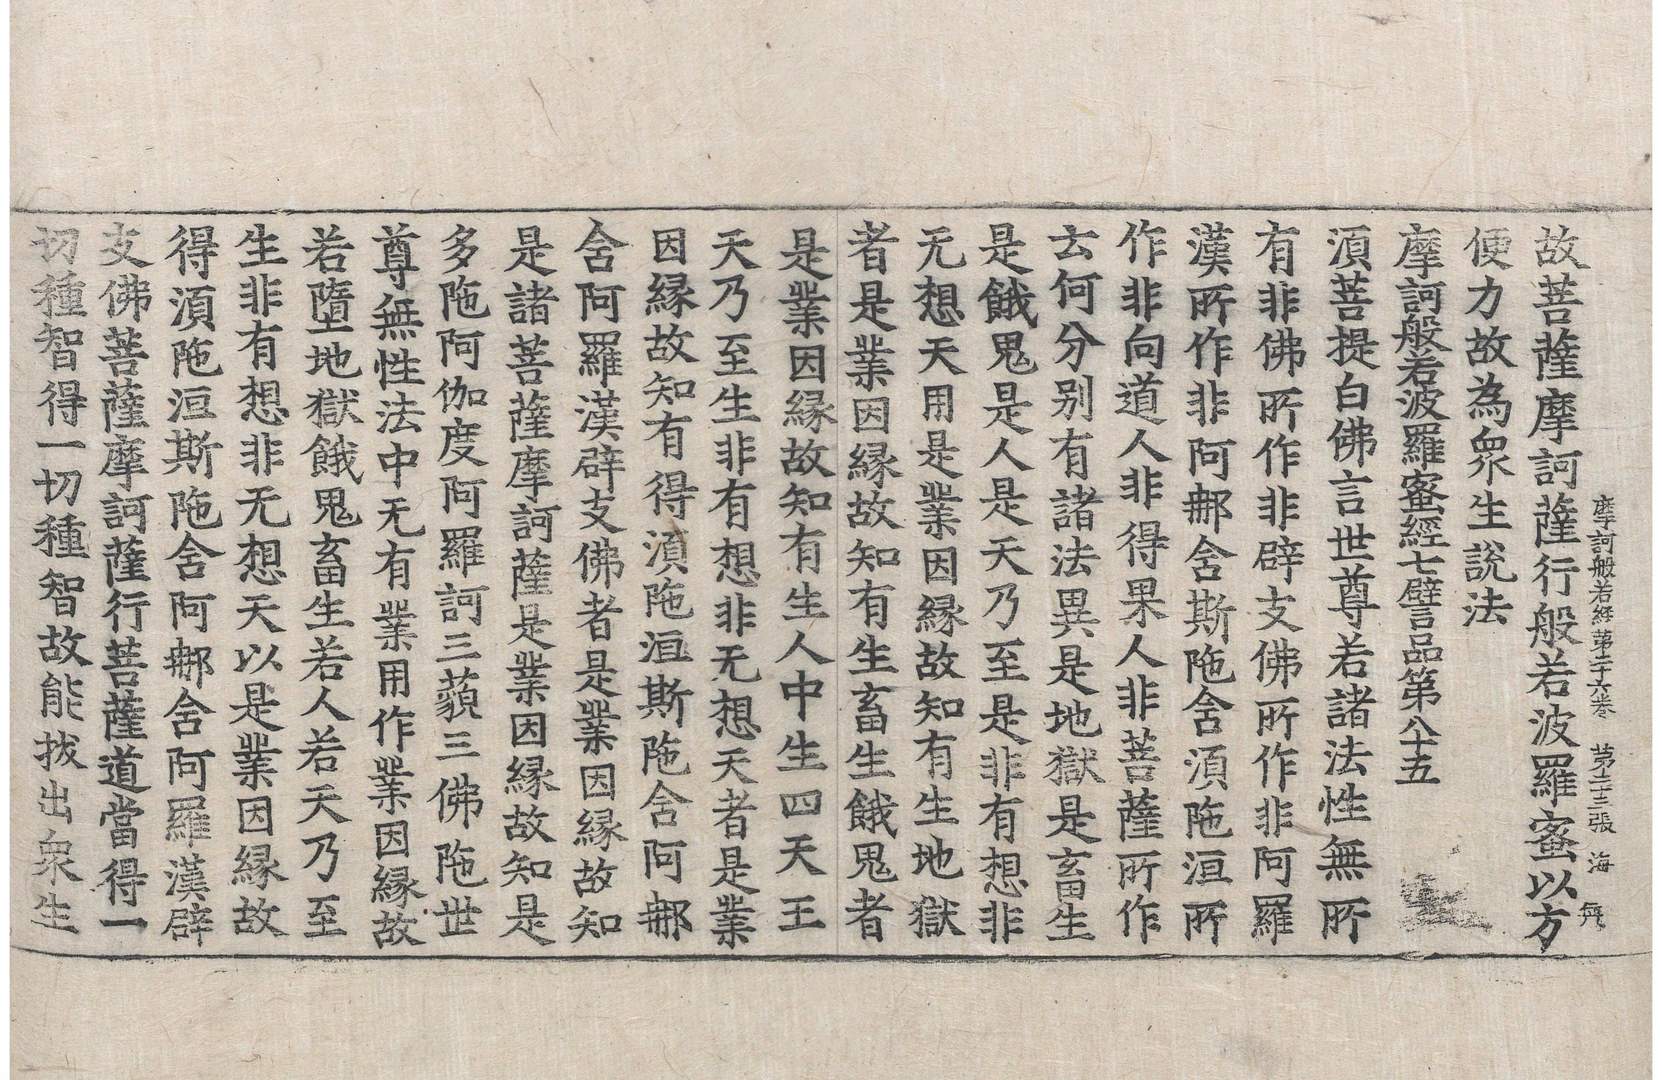 摩訶般若経苐二十六巻　苐二十三張　海　無
故菩薩摩訶薩行般若波羅蜜以方
便力故為衆生説法
摩訶般若波羅蜜經七譬品第八十五
湏菩提白佛言世尊若諸法性無所
有非佛所作非辟支佛所作非阿羅
漢所作非阿郍含斯陁含湏陁洹所
作非向道人非得果人非菩薩所作
云何分别有諸法異是地獄是畜生
是餓鬼是人是天乃至是非有想非
无想天用是業因縁故知有生地獄
者是業因縁故知有生畜生餓鬼者
是業因縁故知有生人中生四天王
天乃至生非有想非无想天者是業
因縁故知有得湏陁洹斯陁含阿郍
含阿羅漢辟支佛者是業因縁故知
是諸菩薩摩訶薩是業因縁故知是
多陁阿伽度阿羅訶三藐三佛陁世
尊無性法中无有業用作業因縁故
若墮地獄餓鬼畜生若人若天乃至
生非有想非无想天以是業因縁故
得湏陁洹斯陁含阿郍含阿羅漢辟
支佛菩薩摩訶薩行菩薩道當得一
切種智得一切種智故能拔出衆生